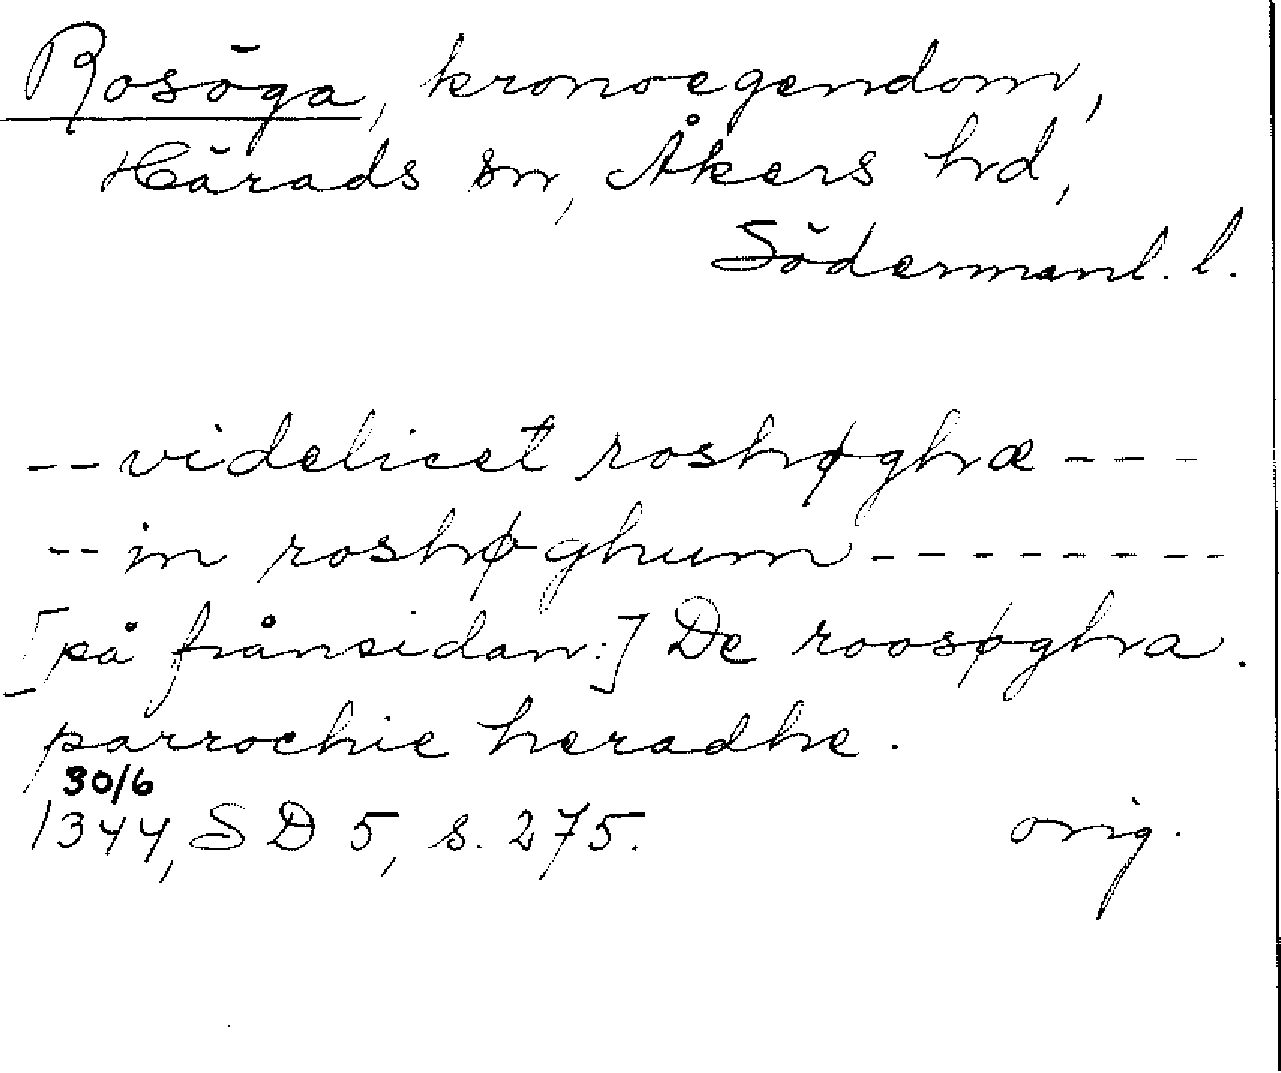 Rosöga, kronoegendom,
Härads sn, Åkers hd,
Södermanl. l.
-- videlicet roshøghæ ---
-- in roshøghum --------
[på frånsidan:] De roosøgha.
parrochie heradhe.
30/6
1344, SD 5, s. 275. orig.